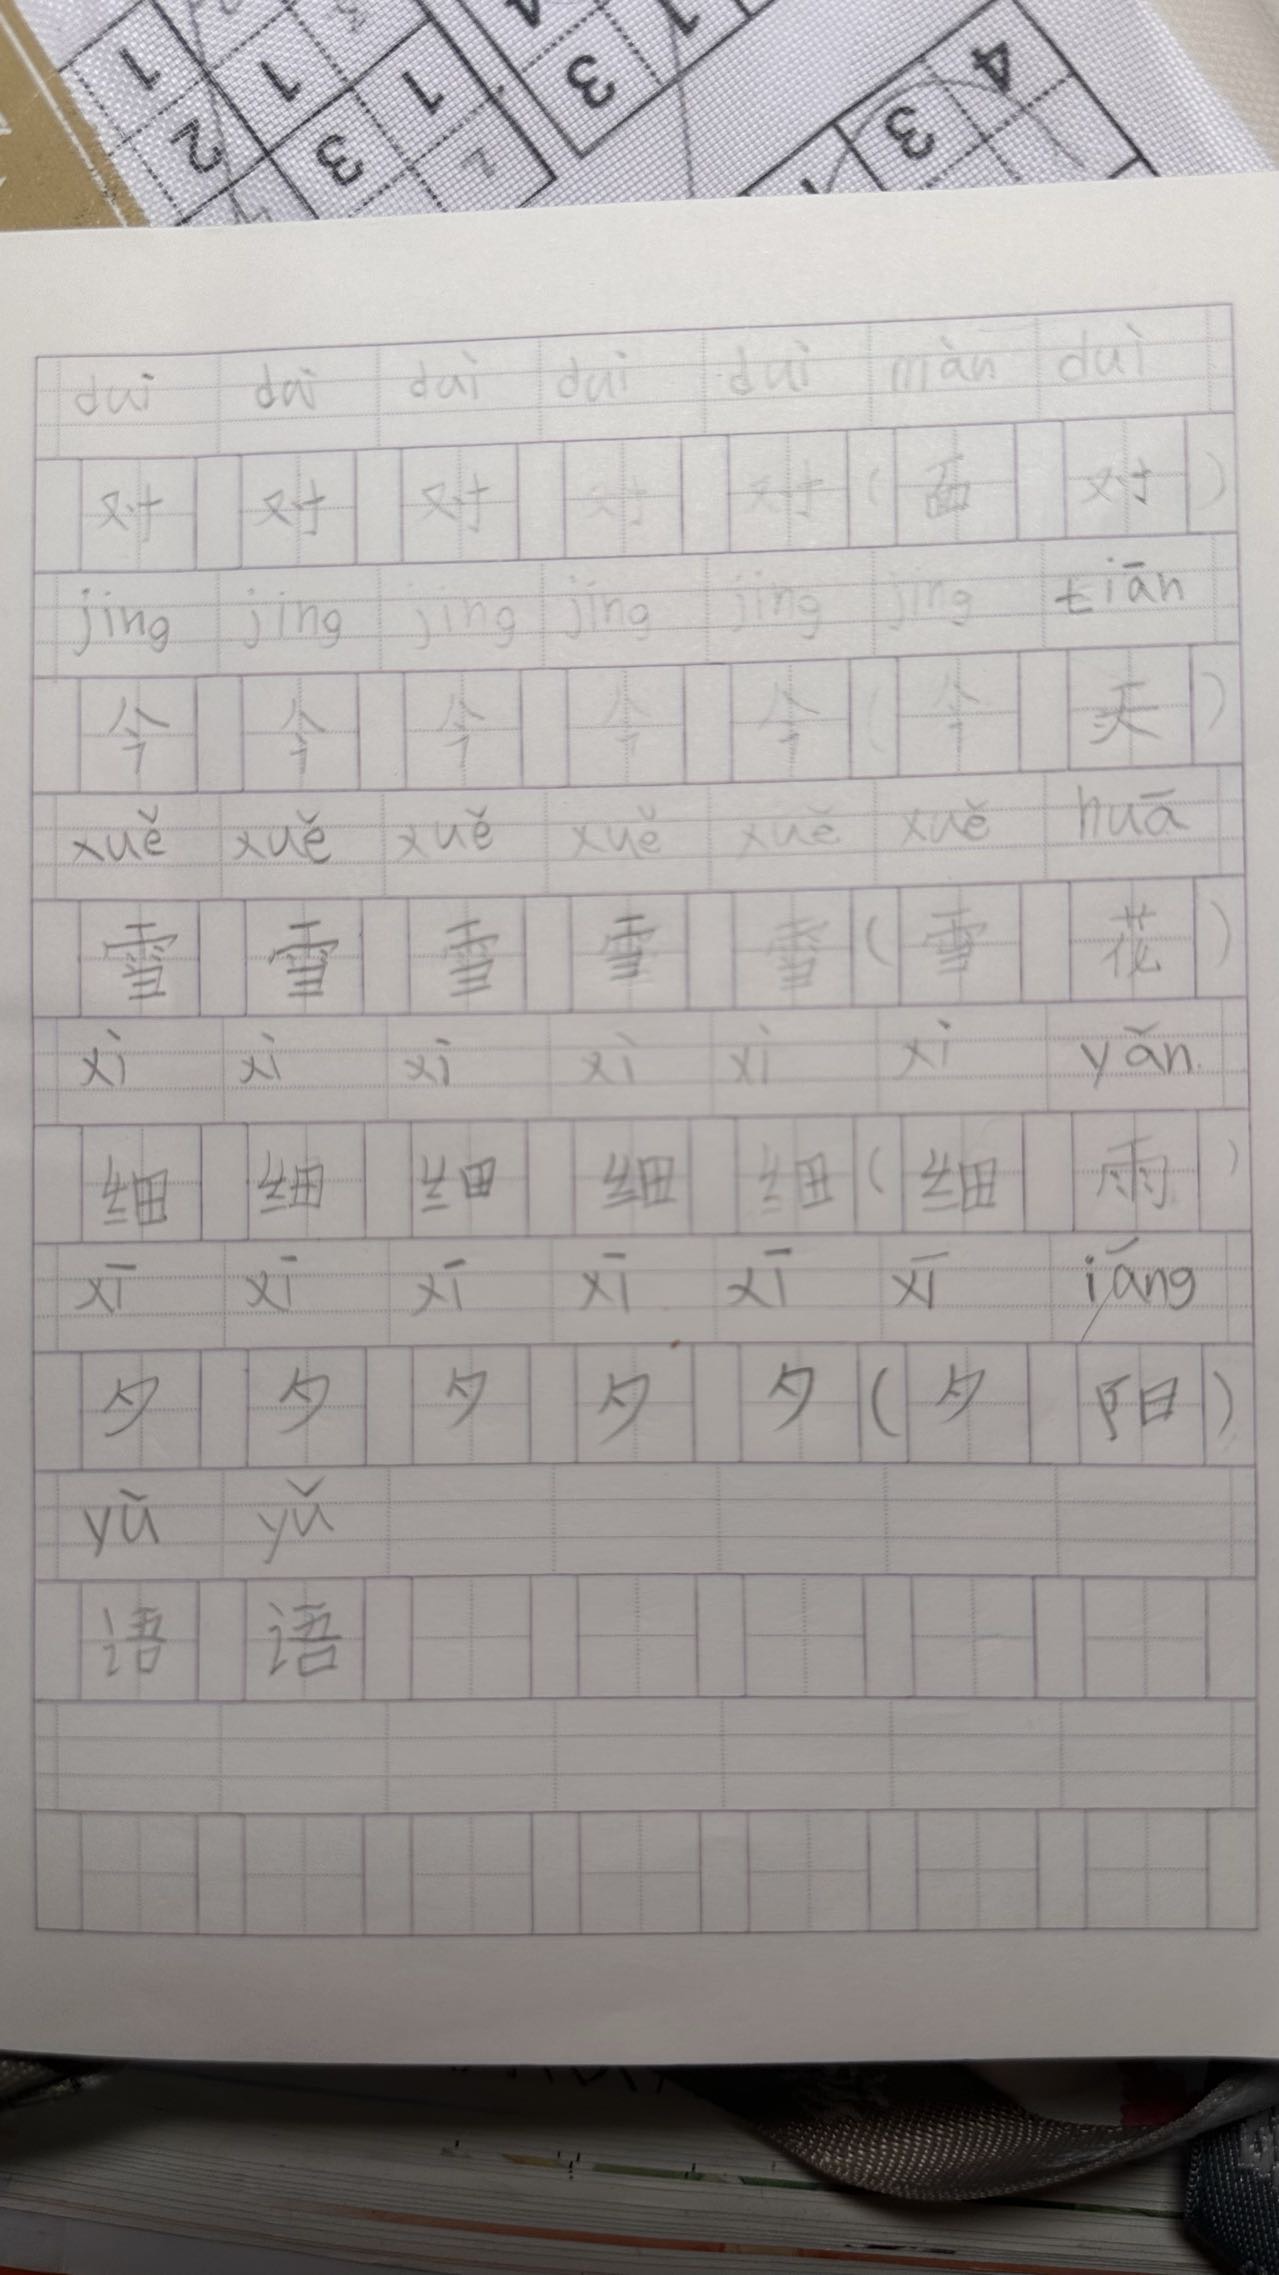 1 1 1 3 1 4
2 3 3
duì duì duì duì duì màn duì
对 对 对 对 对 ( 面 对 )
jīng jīng jīng jīng jīng jīng tiān
今 今 今 今 今 ( 今 天 )
xuě xuě xuě xuě xuě xuě huā
雪 雪 雪 雪 雪 ( 雪 花 )
xì xì xì xì xì xì yǎn
细 细 细 细 细 ( 细 雨 )
xī xī xī xī xī xī jǎng
夕 夕 夕 夕 夕 ( 夕 阳 )
yǔ yǔ
语 语